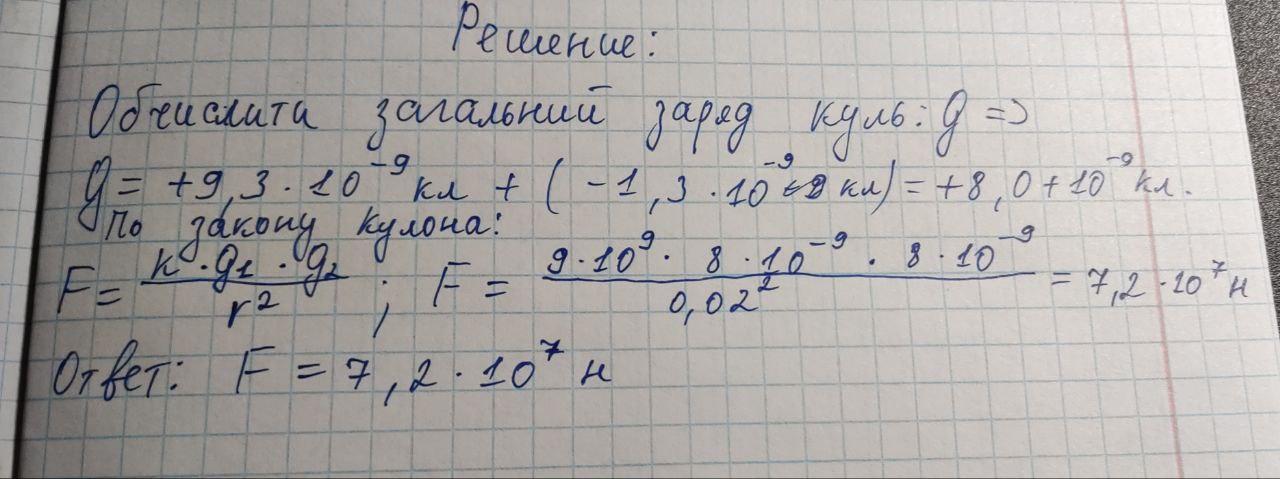 Решение:
Обчислити загальний заряд куль: q =>
q = +9,3 · 10⁻⁹ кл + (-1,3 · 10⁻⁹ кл) = +8,0 + 10⁻⁹ кл.
По закону кулона:
F = k · q1 · q2 / r² ; F = 9 · 10⁹ · 8 · 10⁻⁹ · 8 · 10⁻⁹ / 0,02² = 7,2 · 10⁷ н
Ответ: F = 7,2 · 10⁷ н